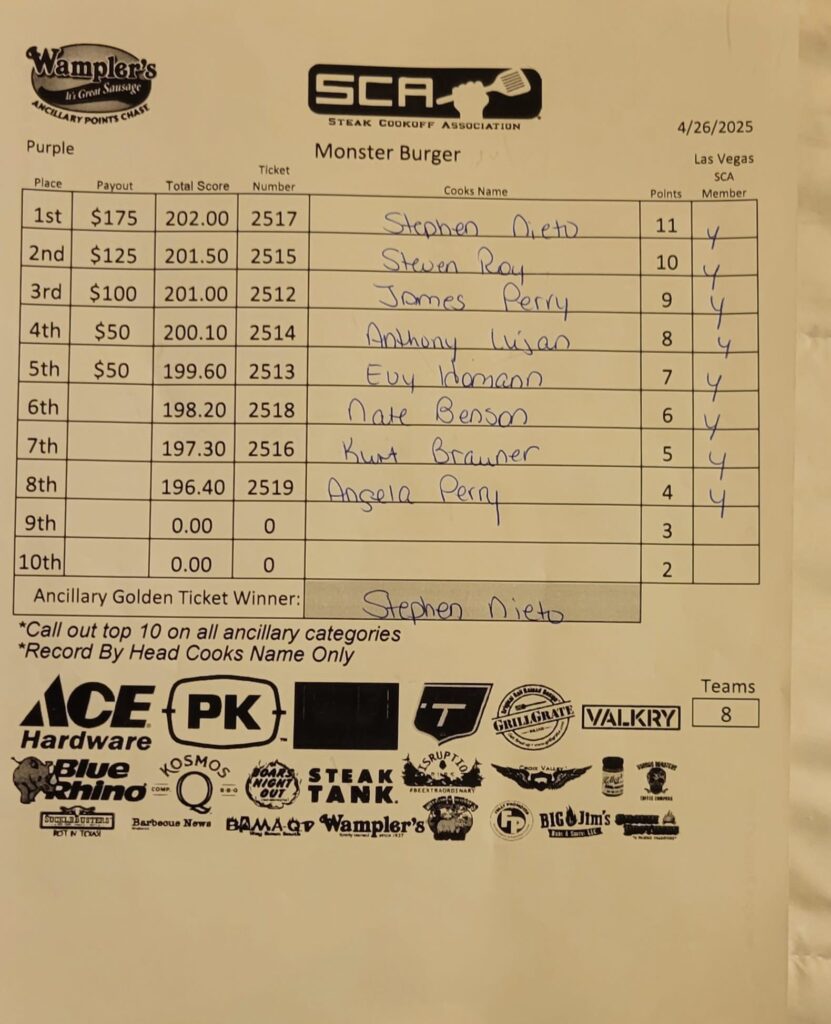 Wampler's
It's Great Sausage
ANCILLARY POINTS CHASE
SCA
STEAK COOKOFF ASSOCIATION
4/26/2025
Purple
Monster Burger
Las Vegas
Place Payout Total Score Ticket Number Cooks Name Points SCA Member
1st $175 202.00 2517 Stephen Nieto 11 y
2nd $125 201.50 2515 Steven Ray 10 y
3rd $100 201.00 2512 James Perry 9 y
4th $50 200.10 2514 Anthony Lujan 8 y
5th $50 199.60 2513 Evy Homann 7 y
6th 198.20 2518 Nate Benson 6 y
7th 197.30 2516 Kurt Brauner 5 y
8th 196.40 2519 Angela Perry 4 y
9th 0.00 0 3
10th 0.00 0 2
Ancillary Golden Ticket Winner: Stephen Nieto
*Call out top 10 on all ancillary categories
*Record By Head Cooks Name Only
Teams
8
ACE Hardware
PK
T
GRILLGRATE
VALKRY
Blue Rhino
KOSMOS Q
COMP. B-B-Q
BOARS NIGHT OUT
STEAK TANK.
DISRUPTION
PREEXTRAORDINARY
CROIX VALLEY
SUCKLEBUSTERS
HOT IN TEXAS
Barbecue News
BAMAQ
Wampler's
BIG Jim's